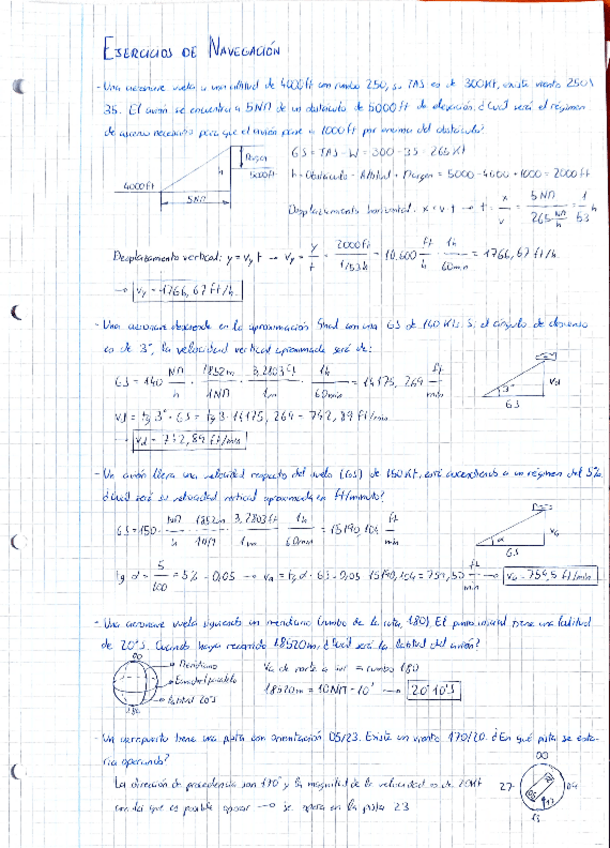 EJERCICIOS DE NAVEGACIÓN
- Una aeronave vuela a una altitud de 4000ft con rumbo 250, su TAS es de 300Kt, existe viento 250\
35. El avión se encuentra a 5NM de un obstáculo de 5000ft de elevación ¿Cuál será el régimen
de ascenso necesario para que el avión pase a 1000ft por encima del obstáculo?
GS = TAS - W = 300 - 35 = 265 Kt
Margen
h
5000ft
4000ft
5NM
h = Obstáculo - Altitud + Margen = 5000 - 4000 + 1000 = 2000ft
Desplazamiento horizontal: x = v t → t = x/v = 5 NM / 265 NM/h = 1/53 h
Desplazamiento vertical: y = Vy t → Vy = y/t = 2000ft / 1/53h = 10.600 ft/h · 1h/60min = 1766,67 ft/h.
→ Vy = 1766,67 ft/h.
- Una aeronave desciende en la aproximación final con una GS de 140 Kts. Si el ángulo de descenso
es de 3°, la velocidad vertical aproximada será de:
GS = 140 NM/h · 1852m/1NM · 3,2803ft/1m · 1h/60min = 14175,269 ft/min
3°
Vd
GS
Vd = tg 3° · GS = tg 3 · 14175,269 = 742,89 ft/min
→ Vd = 742,89 ft/min
- Un avión lleva una velocidad respecto del suelo (GS) de 150Kt, está ascendiendo a un régimen del 5%
¿Cuál será su velocidad vertical aproximada en ft/minuto?
GS = 150 · NM/h · 1852m/1NM · 3,2803ft/1m · 1h/60min = 15190,104 ft/min
α
GS
tg α = 5/100 = 5% = 0,05 → Va = tg α · GS = 0,05 · 15190,104 = 759,50 ft/min → Va = 759,5 ft/min
- Una aeronave vuela siguiendo un meridiano (rumbo de la ruta, 180). El punto inicial tiene una latitud
de 20°S. Cuando haya recorrido 18520m, ¿Cuál será la latitud del avión?
00
→ Meridiano
→ Ecuador/paralelo
→ Latitud 20°S
180
Va de norte a sur = rumbo 180
18520m = 10NM = 10' → 20°10'S
- Un aeropuerto tiene una pista con orientación 05/23. Existe un viento 170/20. ¿En qué pista se esta-
ría operando?
La dirección de procedencia son 170° y la magnitud de la velocidad es de 20Kt
es posible operar → se opera en la pista 23
00
27
09
18